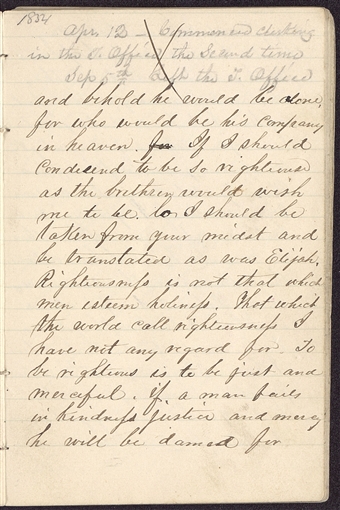 1854
Apr 12 – Commenced clerking
in the T. Office the Second time
Sep 5th Left the T. Office
and behold he would be alone,
for who would be his company
in heaven. If I should
Condisend to be so rightious
as the brethren would wish
me to be. lo I should be
taken from your midst and
be translated as was Elijah.
Rightiousness is not that which
men esteem holiness. That which
the world call righteousness I
have not any regard for. To
be rightious is to be just and
merciful. If a man fails
in kindness justice and mercy
he will be damed for